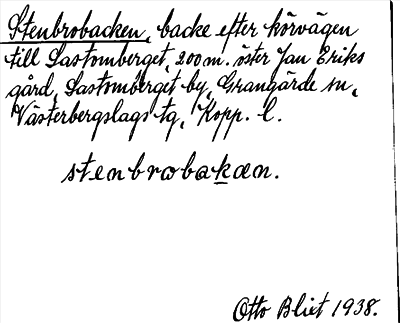 Stenbrobacken, backe efter körvägen
till Lastomberget, 200 m. öster Jan Eriks
gård, Lastomberget by, Grangärde sn,
Västerbergslags tg, Kopp. l.
stenbrobakæn.
Otto Blixt 1938.